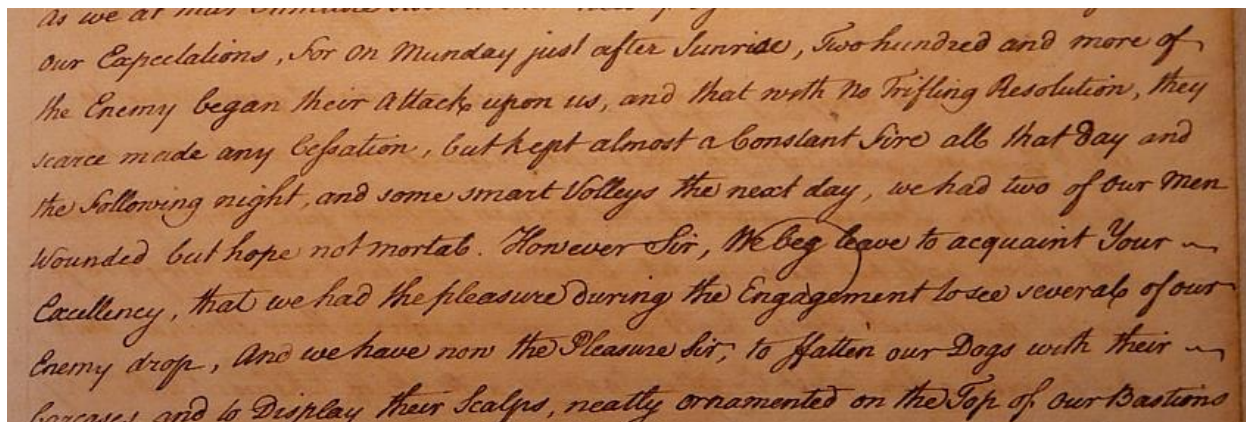 as we at
our Expectations, for on Munday just after Sunrise, Two hundred and more of
the Enemy began their Attack upon us, and that with no Trifling Resolution, they
scarce made any Cessation, but kept almost a Constant Fire all that Day and
the Following night, and some smart Volleys the next day, we had two of Our Men
Wounded but hope not mortal. However Sir, We beg leave to acquaint Your
Excellency, that we had the pleasure during the Engagement to see several of our
Enemy drop, And we have now the Pleasure Sir, to ffatten our Dogs with their
Carcases, and to Display their Scalps, neatly ornamented on the Top of our Bastions